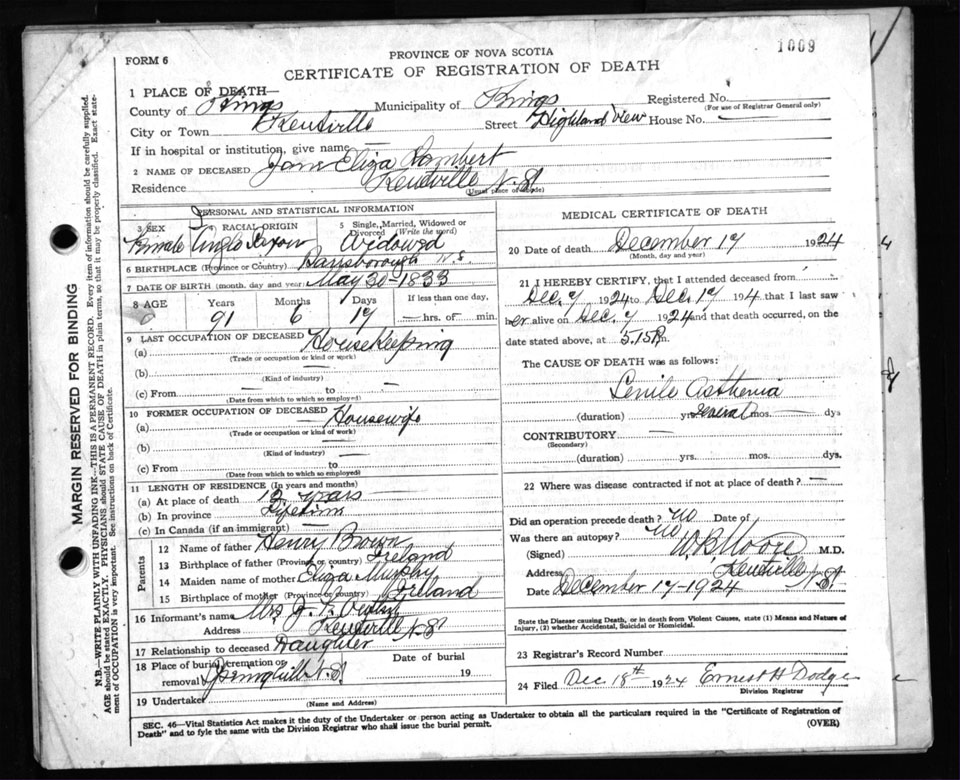 1009
PROVINCE OF NOVA SCOTIA
FORM 6
CERTIFICATE OF REGISTRATION OF DEATH
1 PLACE OF DEATH—
County of Kings Municipality of Kings Registered No.
(For use of Registrar General only)
City or Town Kentville Street Highland View House No. —
If in hospital or institution, give name —
2 NAME OF DECEASED Jane Eliza Lambert
Residence Kentville N.S.
(Usual place of abode)
PERSONAL AND STATISTICAL INFORMATION
3 SEX RACIAL ORIGIN 5 Single, Married, Widowed or Divorced (Write the word)
Female Anglo Saxon Widowed
6 BIRTHPLACE (Province or Country) Parrsborough N.S.
7 DATE OF BIRTH (month, day and year) May 30-1833
8 AGE Years Months Days If less than one day,
91 6 17 — hrs. of — min.
9 LAST OCCUPATION OF DECEASED
(a) HouseKeeping
(Trade or occupation or kind or work)
(b) —
(Kind of industry)
(c) From — to —
(Date from which to which so employed)
10 FORMER OCCUPATION OF DECEASED
(a) Housewife
(Trade or occupation or kind of work)
(b) —
(Kind of industry)
(c) From — to —
(Date from which to which so employed)
11 LENGTH OF RESIDENCE (In years and months)
(a) At place of death 12 years
(b) In province Lifetime
(c) In Canada (if an immigrant) —
Parents
12 Name of father Henry Brown
13 Birthplace of father (Province or country) Ireland
14 Maiden name of mother Eliza Murphy
15 Birthplace of mother (Province or country) Ireland
16 Informant's name Mrs J. F.
Address Kentville N.S.
17 Relationship to deceased Daughter
18 Place of burial, cremation or removal Springhill N.S. Date of burial 19
19 Undertaker
(Name and Address)
MEDICAL CERTIFICATE OF DEATH
20 Date of death December 17 1924
(Month, day and year)
21 I HEREBY CERTIFY, that I attended deceased from
Dec. 7 1924 to Dec. 17 194 that I last saw
her alive on Dec. 7 1924 and that death occurred, on
date stated above, at 5.15 P.m.
The CAUSE OF DEATH was as follows:
Senile Asthenia
(duration) yrs. several mos. — dys
CONTRIBUTORY —
(Secondary)
(duration) yrs. mos. dys.
22 Where was disease contracted if not at place of death? —
Did an operation precede death? no Date of
Was there an autopsy? no
(Signed) W B Moore M.D.
Address Kentville N.S.
Date December 17-1924
State the Disease causing Death, or in death from Violent Causes, state (1) Means and Nature of
Injury, (2) whether Accidental, Suicidal or Homicidal.
23 Registrar's Record Number
24 Filed Dec 18th 1924 Ernest H Dodge
Division Registrar
SEC. 46—Vital Statistics Act makes it the duty of the Undertaker or person acting as Undertaker to obtain all the particulars required in the "Certificate of Registration of
Death" and to fyle the same with the Division Registrar who shall issue the burial permit. (OVER)
MARGIN RESERVED FOR BINDING
N.B.—WRITE PLAINLY, WITH UNFADING INK—THIS IS A PERMANENT RECORD. Every item of information should be carefully supplied.
AGE should be stated EXACTLY. PHYSICIANS should STATE CAUSE OF DEATH in plain terms, so that it may be properly classified. Exact state-
ment of OCCUPATION is very important. See instructions on back of Certificate.